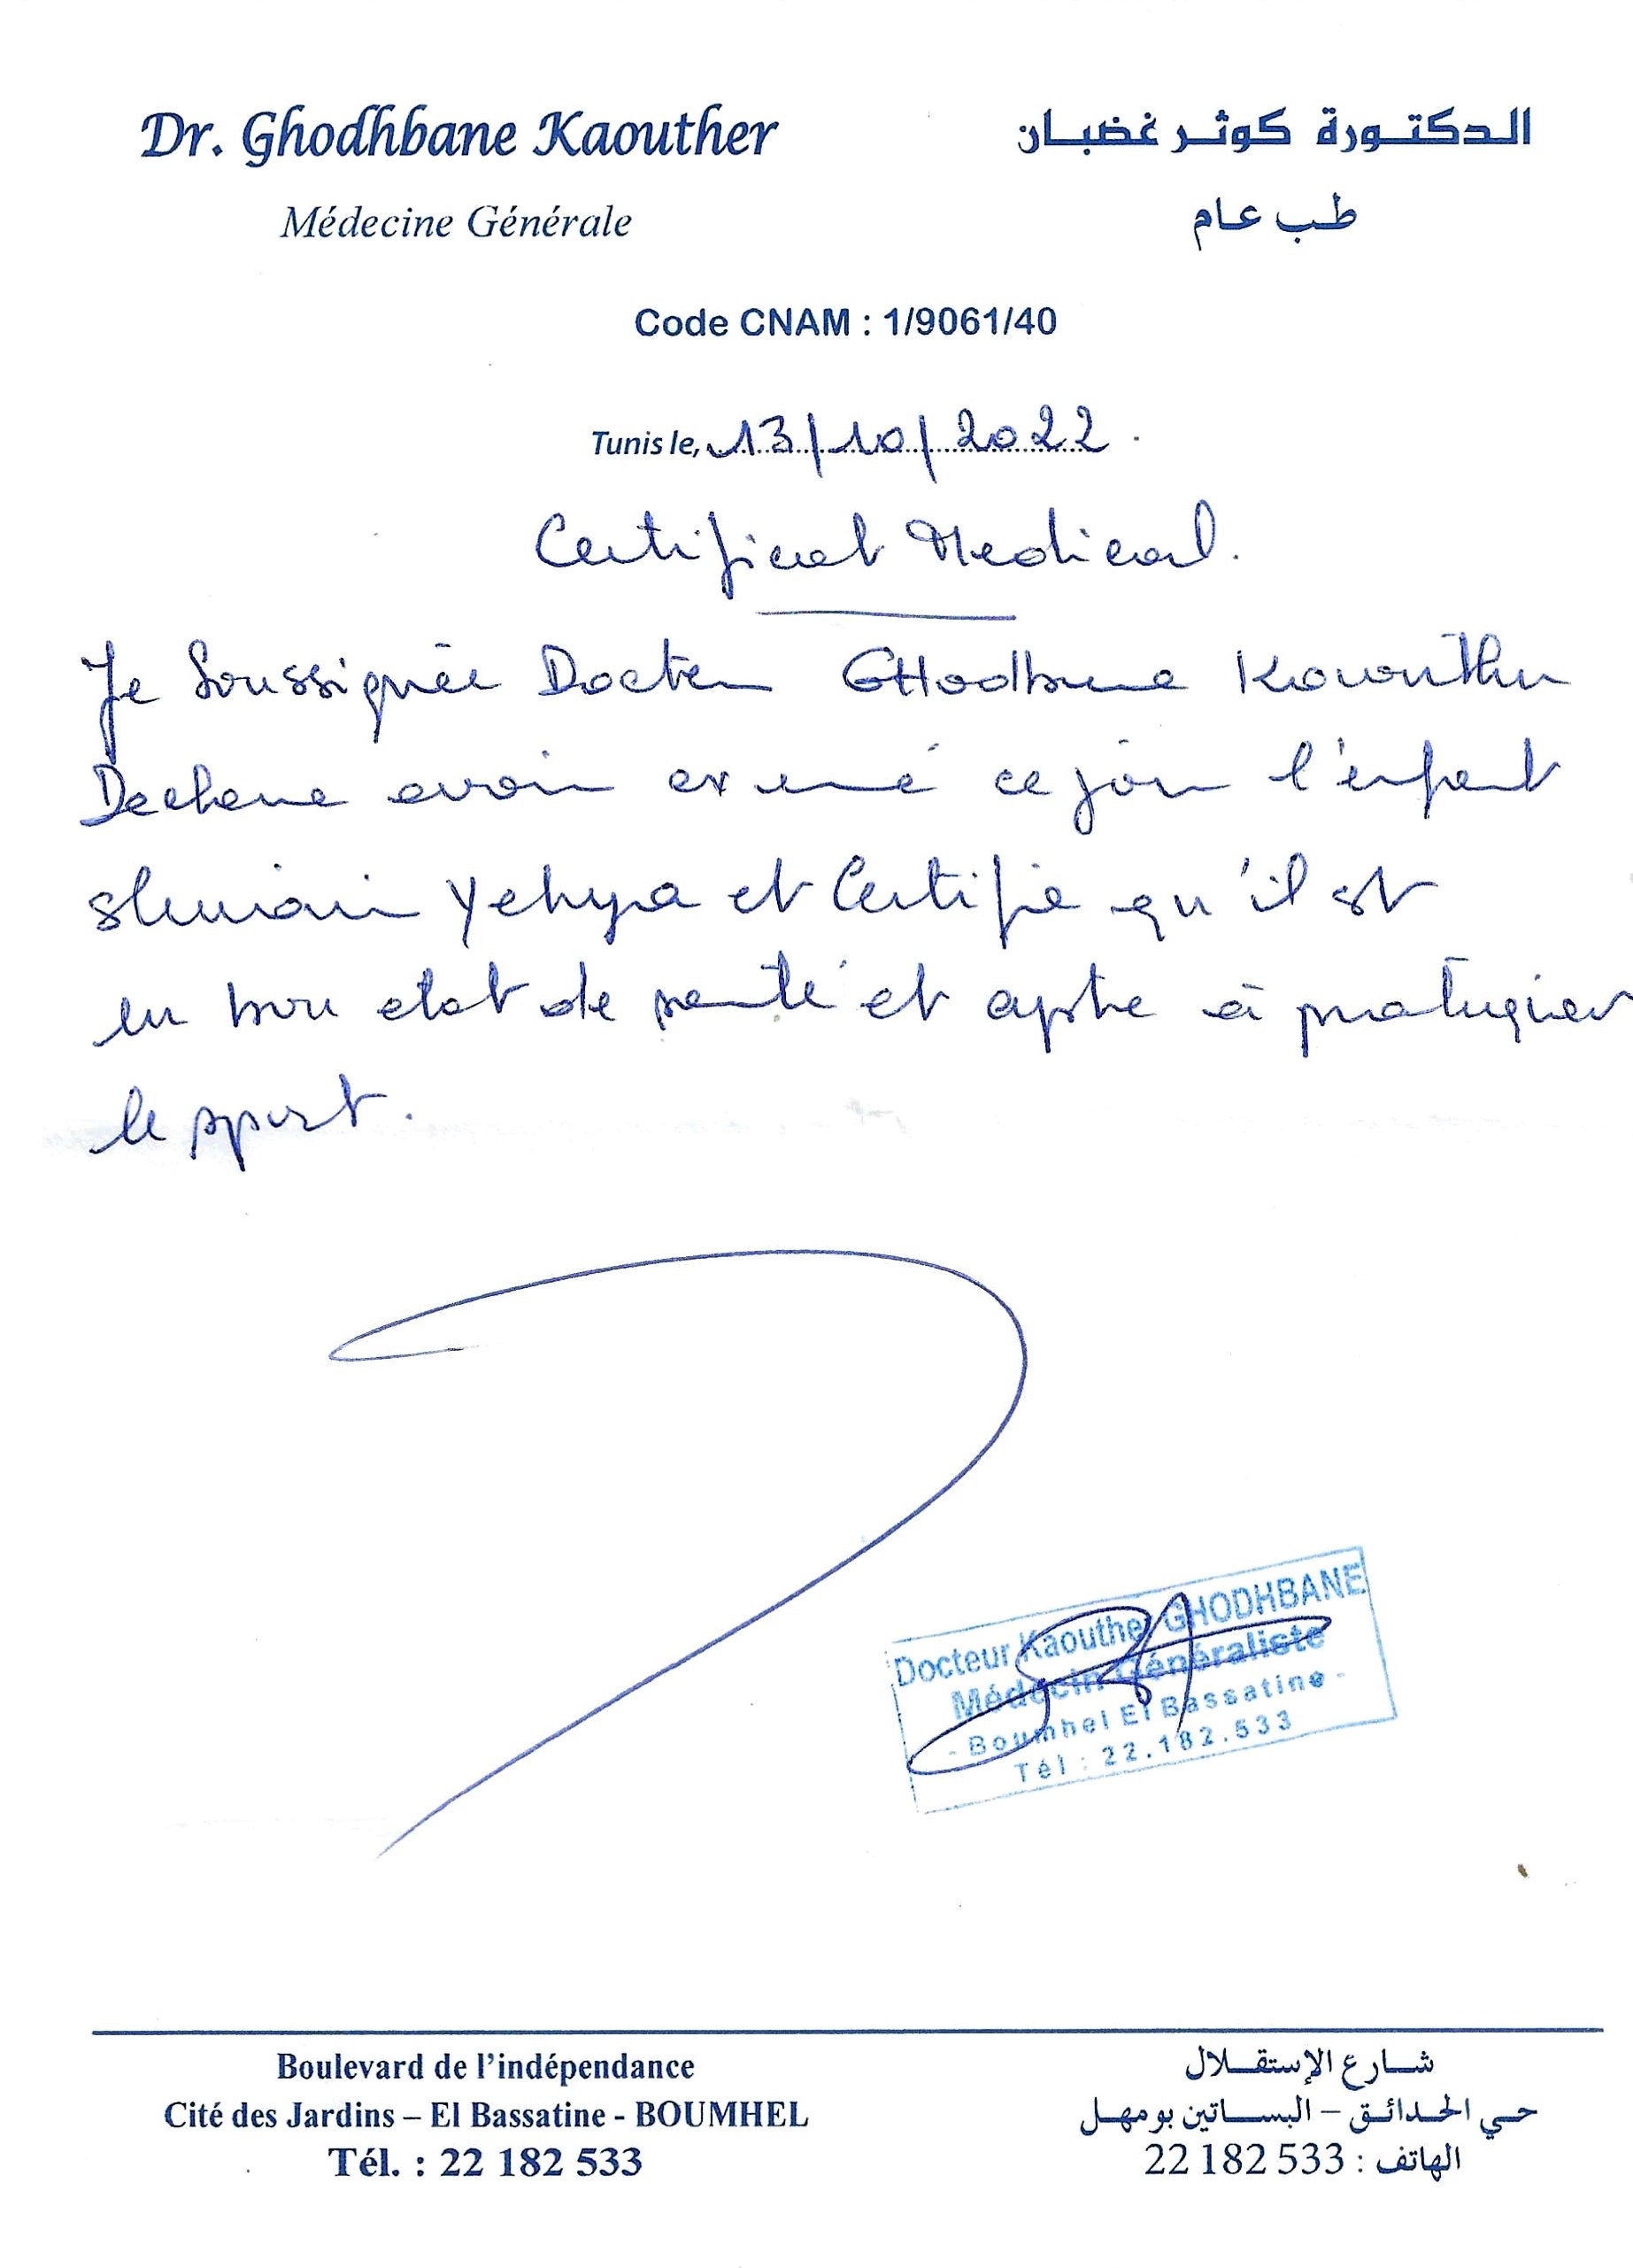 Dr. Ghodhbane Kaouther
الدكتورة كوثر غضبان
Médecine Générale
طب عام
Code CNAM : 1/9061/40
Tunis le, 13/10/2022
Certificat Medical.
Je Soussignée Docteur GHodhbane Kaouther
Declare avoir examiné ce jour l'enfant
Yehya et Certifie qu'il est
en bon etat de santé et apte à pratiquer
le sport.
Docteur Kaouther GHODHBANE
Médecin Généraliste
- Boumhel El Bassatine -
Tél : 22.182.533
Boulevard de l'indépendance
Cité des Jardins – El Bassatine - BOUMHEL
Tél. : 22 182 533
شارع الإستقلال
حي الحدائق – البساتين بومهل
الهاتف : 22 182 533